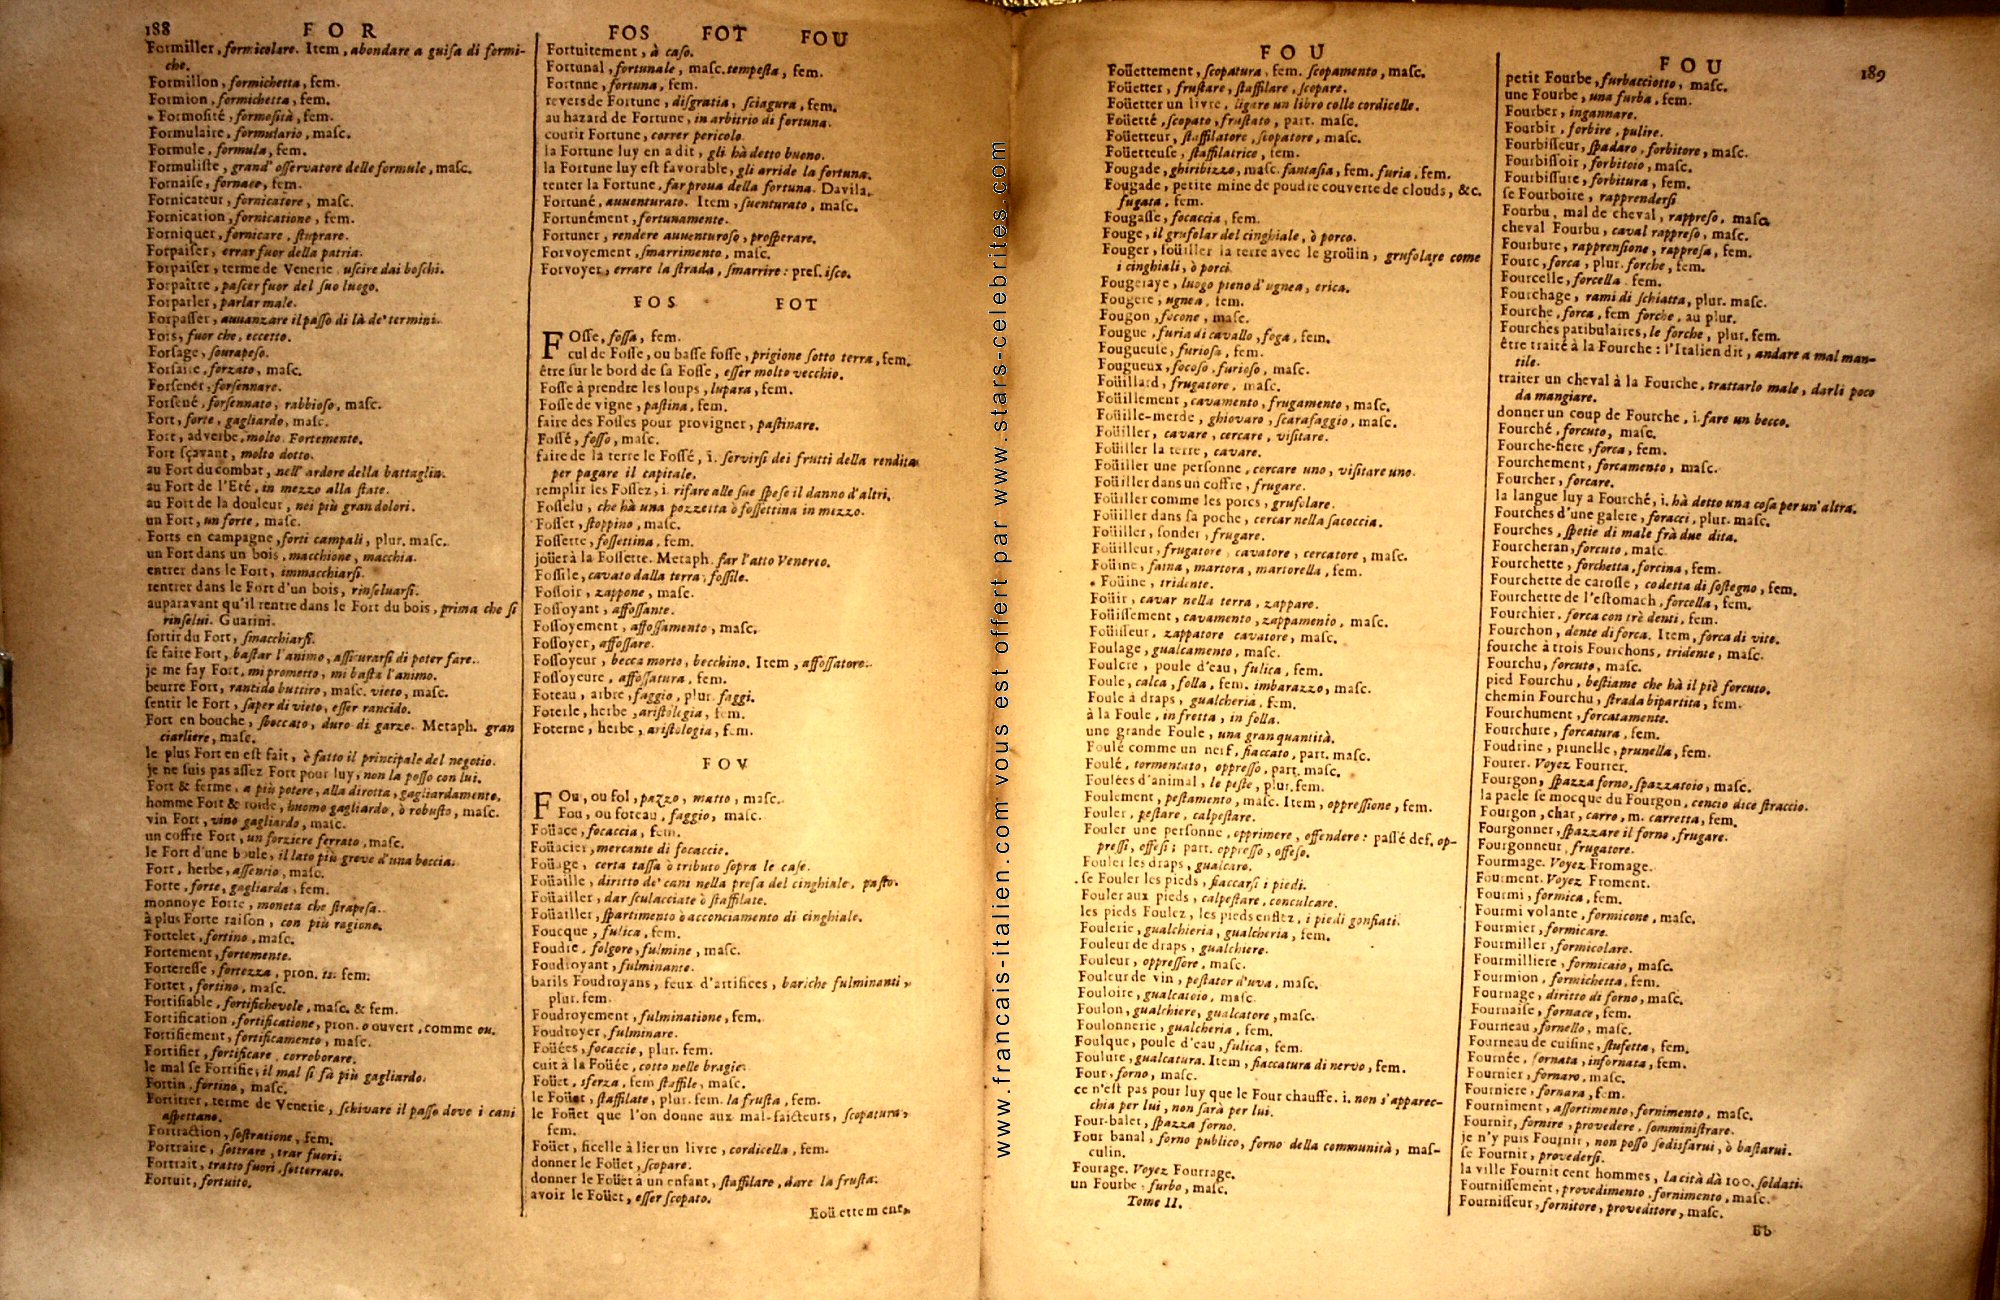 188 FOR
Formiller, formicolare. Item, abondare a guisa di formi-
che.
Formillon, formichetta, fem.
Formion, formichetta, fem.
* Formosité, formosità, fem.
Formulaire, formulario, masc.
Formule, formula, fem.
Formuliste, grand' osservatore delle formule, masc.
Fornaise, fornace, fem.
Fornicateur, fornicatore, masc.
Fornication, fornicatione, fem.
Forniquer, fornicare, stuprare.
Forpaiser, errar fuor della patria.
Forpaiser, terme de Venerie, uscire dai boschi.
Forpaître, pascer fuor del suo luogo.
Forparler, parlar male.
Forpasser, avvanzare il passo di là de' termini.
Fors, fuor che, eccetto.
Forsage, sourapeso.
Forsaire, forzato, masc.
Forsener, forsennare.
Forsené, forsennato, rabbioso, masc.
Fort, forte, gagliardo, masc.
Fort, adverbe, molto. Fortemente.
Fort sçavant, molto dotto.
au Fort du combat, nell' ardore della battaglia.
au Fort de l'Eté, in mezzo alla state.
au Fort de la douleur, nei più gran dolori.
un Fort, un forte, masc.
Forts en campagne, forti campali, plur. masc.
un Fort dans un bois, macchione, macchia.
entrer dans le Fort, immacchiarsi.
rentrer dans le Fort d'un bois, rinseluarsi.
auparavant qu'il rentre dans le Fort du bois, prima che si
rinselui. Guarini.
sortir du Fort, smacchiarsi.
se faire Fort, bastar l'animo, assicurarsi di poter fare.
je me fay Fort, mi prometto, mi basta l'animo.
beurre Fort, rancido buttiro, masc. vieto, masc.
sentir le Fort, saper di vieto, esser rancido.
Fort en bouche, sboccato, duro di garze. Metaph. gran
ciarliere, masc.
le plus Fort en est fait, è fatto il principale del negotio.
je ne suis pas assez Fort pour luy, non la posso con lui.
Fort & ferme, a più potere, alla dirotta, gagliardamente.
homme Fort & roide, huomo gagliardo, ò robusto, masc.
vin Fort, vino gagliardo, masc.
un coffre Fort, un forziere ferrato, masc.
le Fort d'une boule, il lato più greve d'una boccia.
Fort, herbe, assentio, masc.
Forte, forte, gagliarda, fem.
monnoye Forte, moneta che strapesa.
à plus Forte raison, con più ragione.
Fortelet, fortino, masc.
Fortement, fortemente.
Forteresse, fortezza, pron. ts. fem.
Fortet, fortino, masc.
Fortifiable, fortifichevole, masc. & fem.
Fortification, fortificatione, pron. o ouvert, comme ou.
Fortifiement, fortificamento, masc.
Fortifier, fortificare, corroborare.
le mal se Fortifie, il mal si fà più gagliardo.
Fortin, fortino, masc.
Fortitrer, terme de Venerie, schivare il passo dove i cani
aspettano.
Fortraction, sostratione, fem.
Fortraire, sottrare, trar fuori.
Fortrait, tratto fuori, sotterrato.
Fortuit, fortuito.
FOS FOT FOU
Fortuitement, à caso.
Fortunal, fortunale, masc. tempesta, fem.
Fortune, fortuna, fem.
revers de Fortune, disgratia, sciagura, fem.
au hazard de Fortune, in arbitrio di fortuna.
courir Fortune, correr pericolo.
la Fortune luy en a dit, gli hà detto buono.
la Fortune luy est favorable, gli arride la fortuna.
tenter la Fortune, far prova della fortuna. Davila.
Fortuné, avventurato. Item, sventurato, masc.
Fortunément, fortunamente.
Fortuner, rendere avventuroso, prosperare.
Forvoyement, smarrimento, masc.
Forvoyer, errare la strada, smarrire: pres. isco.
FOS FOT
FOsse, fossa, fem.
cul de Fosse, ou basse fosse, prigione sotto terra, fem.
être sur le bord de sa Fosse, esser molto vecchio.
Fosse à prendre les loups, lupara, fem.
Fosse de vigne, pastina, fem.
faire des Fosses pour provigner, pastinare.
Fossé, fosso, masc.
faire de la terre le Fossé, i. servirsi dei frutti della rendita
per pagare il capitale.
remplir les Fossez, i. rifare alle sue spese il danno d'altri.
Fosselu, che hà una pozzetta ò fossettina in mezzo.
Fosset, stoppino, masc.
Fossette, fossettina, fem.
joüer à la Fossette. Metaph. far l'atto Venereo.
Fossile, cavato dalla terra, fossile.
Fossoir, zappone, masc.
Fossoyant, affossante.
Fossoyement, affossamento, masc.
Fossoyer, affossare.
Fossoyeur, becca morto, becchino. Item, affossatore.
Fossoyeure, affossatura, fem.
Foteau, arbre, faggio, plur. faggi.
Foterle, herbe, aristologia, fem.
Foterne, herbe, aristologia, fem.
FOV
FOu, ou fol, pazzo, matto, masc.
Fou, ou foteau, faggio, masc.
Foüace, focaccia, fem.
Foüacier, mercante di focaccie.
Foüage, certa tassa ò tributo sopra le case.
Foüaille, diritto de' cani nella presa del cinghiale, pasto.
Foüailler, dar sculacciate ò staffilate.
Foüailler, spartimento ò acconciamento di cinghiale.
Foucque, fulica, fem.
Foudre, folgore, fulmine, masc.
Foudroyant, fulminante.
barils Foudroyans, feux d'artifices, bariche fulminanti,
plur. fem.
Foudroyement, fulminatione, fem.
Foudroyer, fulminare.
Foüées, focaccie, plur. fem.
cuit à la Foüée, cotto nelle bragie.
Foüet, sferza, fem. staffile, masc.
le Foüet, staffilate, plur. fem. la frusta, fem.
le Foüet que l'on donne aux mal-faicteurs, scopatura,
fem.
Foüet, ficelle à lier un livre, cordicella, fem.
donner le Foüet, scopare.
donner le Foüet à un enfant, staffilare, dare la frusta.
avoir le Foüet, esser scopato.
Foüettement,
FOU
Foüettement, scopatura, fem. scopamento, masc.
Foüetter, frustare, staffilare, scopare.
Foüetter un livre, ligare un libro colle cordicelle.
Foüetté, scopato, frustato, part. masc.
Foüetteur, staffilatore, scopatore, masc.
Foüetteuse, staffilatrice, fem.
Fougade, ghiribizzo, masc. fantasia, fem. furia, fem.
Fougade, petite mine de poudre couverte de clouds, &c.
fugata, fem.
Fougasse, focaccia, fem.
Fouge, il grufolar del cinghiale, ò porco.
Fouger, foüiller la terre avec le groüin, grufolare come
i cinghiali, ò porci.
Fougeraye, luogo pieno d'ugnea, erica.
Fougere, ugnea, fem.
Fougon, focone, masc.
Fougue, furia di cavallo, foga, fem.
Fougueuse, furiosa, fem.
Fougueux, focoso, furioso, masc.
Foüillard, frugatore, masc.
Foüillement, cavamento, frugamento, masc.
Foüille-merde, ghiovaro, scarafaggio, masc.
Foüiller, cavare, cercare, visitare.
Foüiller la terre, cavare.
Foüiller une personne, cercare uno, visitare uno.
Foüiller dans un coffre, frugare.
Foüiller comme les porcs, grufolare.
Foüiller dans sa poche, cercar nella saccoccia.
Foüiller, sonder, frugare.
Foüilleur, frugatore, cavatore, cercatore, masc.
Foüine, faina, martora, martorella, fem.
* Foüine, tridente.
Foüir, cavar nella terra, zappare.
Foüissement, cavamento, zappamento, masc.
Foüisseur, zappatore, cavatore, masc.
Foulage, gualcamento, masc.
Foulcre, poule d'eau, fulica, fem.
Foule, calca, folla, fem. imbarazzo, masc.
Foule à draps, gualcheria, fem.
à la Foule, in fretta, in folla.
une grande Foule, una gran quantità.
Foulé comme un nerf, fiaccato, part. masc.
Foulé, tormentato, oppresso, part. masc.
Foulées d'animal, le peste, plur. fem.
Foulement, pestamento, masc. Item, oppressione, fem.
Fouler, pestare, calpestare.
Fouler une personne, opprimere, offendere: passé def. op-
pressi, offesi; part. oppresso, offeso.
Fouler les draps, gualcare.
se Fouler les pieds, fiaccarsi i piedi.
Fouler aux pieds, calpestare, conculcare.
les pieds Foulez, les pieds enflez, i piedi gonfiati.
Foulerie, gualchieria, gualcheria, fem.
Fouleur de draps, gualchiere.
Fouleur, oppressore, masc.
Fouleur de vin, pestator d'uva, masc.
Fouloire, gualcatoio, masc.
Foulon, gualchiere, gualcatore, masc.
Foulonnerie, gualcheria, fem.
Foulque, poule d'eau, fulica, fem.
Foulure, gualcatura. Item, fiaccatura di nervo, fem.
Four, forno, masc.
ce n'est pas pour luy que le Four chauffe. i. non s'apparec-
chia per lui, non sarà per lui.
Four-balet, spazza forno.
Four banal, forno publico, forno della communità, mas-
culin.
Fourage. Voyez Fourrage.
un Fourbe, furbo, masc.
Tome II.
FOU 189
petit Fourbe, furbacciotto, masc.
une Fourbe, una furba, fem.
Fourber, ingannare.
Fourbir, forbire, pulire.
Fourbisseur, spadaro, forbitore, masc.
Fourbissoir, forbitoio, masc.
Fourbissure, forbitura, fem.
se Fourboire, rapprendersi
Fourbu, mal de cheval, rappreso, masc.
cheval Fourbu, caval rappreso, masc.
Fourbure, rapprensione, rappresa, fem.
Fourc, forca, plur. forche, fem.
Fourcelle, forcella, fem.
Fourchage, rami di schiatta, plur. masc.
Fourche, forca, fem forche, au plur.
Fourches patibulaires, le forche, plur. fem.
être traité à la Fourche: l'Italien dit, andare a mal man-
tile.
traiter un cheval à la Fourche, trattarlo male, darli poco
da mangiare.
donner un coup de Fourche, i. fare un becco.
Fourché, forcuto, masc.
Fourche-fiere, forca, fem.
Fourchement, forcamento, masc.
Fourcher, forcare.
la langue luy a Fourché, i. hà detto una cosa per un' altra.
Fourches d'une galere, foracci, plur. masc.
Fourches, spetie di male frà due dita.
Fourcheran, forcuto, masc.
Fourchette, forchetta, forcina, fem.
Fourchette de carosse, codetta di sostegno, fem.
Fourchette de l'estomach, forcella, fem.
Fourchier, forca con trè denti, fem.
Fourchon, dente di forca. Item, forca di vite.
fourche à trois Fourchons, tridente, masc.
Fourchu, forcuto, masc.
pied Fourchu, bestiame che hà il piè forcuto.
chemin Fourchu, strada bipartita, fem.
Fourchument, forcatamente.
Fourchure, forcatura, fem.
Foudrine, prunelle, prunella, fem.
Fourer. Voyez Fourrer.
Fourgon, spazza forno, spazzatoio, masc.
la paele se mocque du Fourgon, cencio dice straccio.
Fourgon, char, carro, m. carretta, fem.
Fourgonner, spazzare il forno, frugare.
Fourgonneur, frugatore.
Fourmage. Voyez Fromage.
Fourment. Voyez Froment.
Fourmi, formica, fem.
Fourmi volante, formicone, masc.
Fourmier, formicare.
Fourmiller, formicolare.
Fourmilliere, formicaio, masc.
Fourmion, formichetta, fem.
Fournage, diritto di forno, masc.
Fournaise, fornace, fem.
Fourneau, fornello, masc.
Fourneau de cuisine, stufetta, fem.
Fournée, fornata, infornata, fem.
Fournier, fornaro, masc.
Fourniere, fornara, fem.
Fourniment, assortimento, fornimento, masc.
Fournir, fornire, provedere, somministrare.
je n'y puis Fournir, non posso sodisfarui, ò bastarui.
se Fournir, provedersi.
la ville Fournit cent hommes, la città dà 100. soldati.
Fournissement, provedimento, fornimento, masc.
Fournisseur, fornitore, proveditore, masc.
Bb
www.francais-italien.com vous est offert par www.stars-celebrites.com